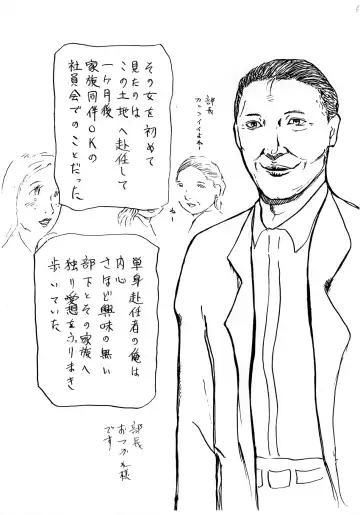 その女を初めて
見たのは
この土地へ赴任して
一ヶ月後
家族同伴OKの
社員会でのことだった
部長
カッコイイよね~
ね
単身赴任者の俺は
内心
さほど興味の無い
部下とその家族へ
独り愛想をふりまき
歩いていた
部長
おつかれ様
です